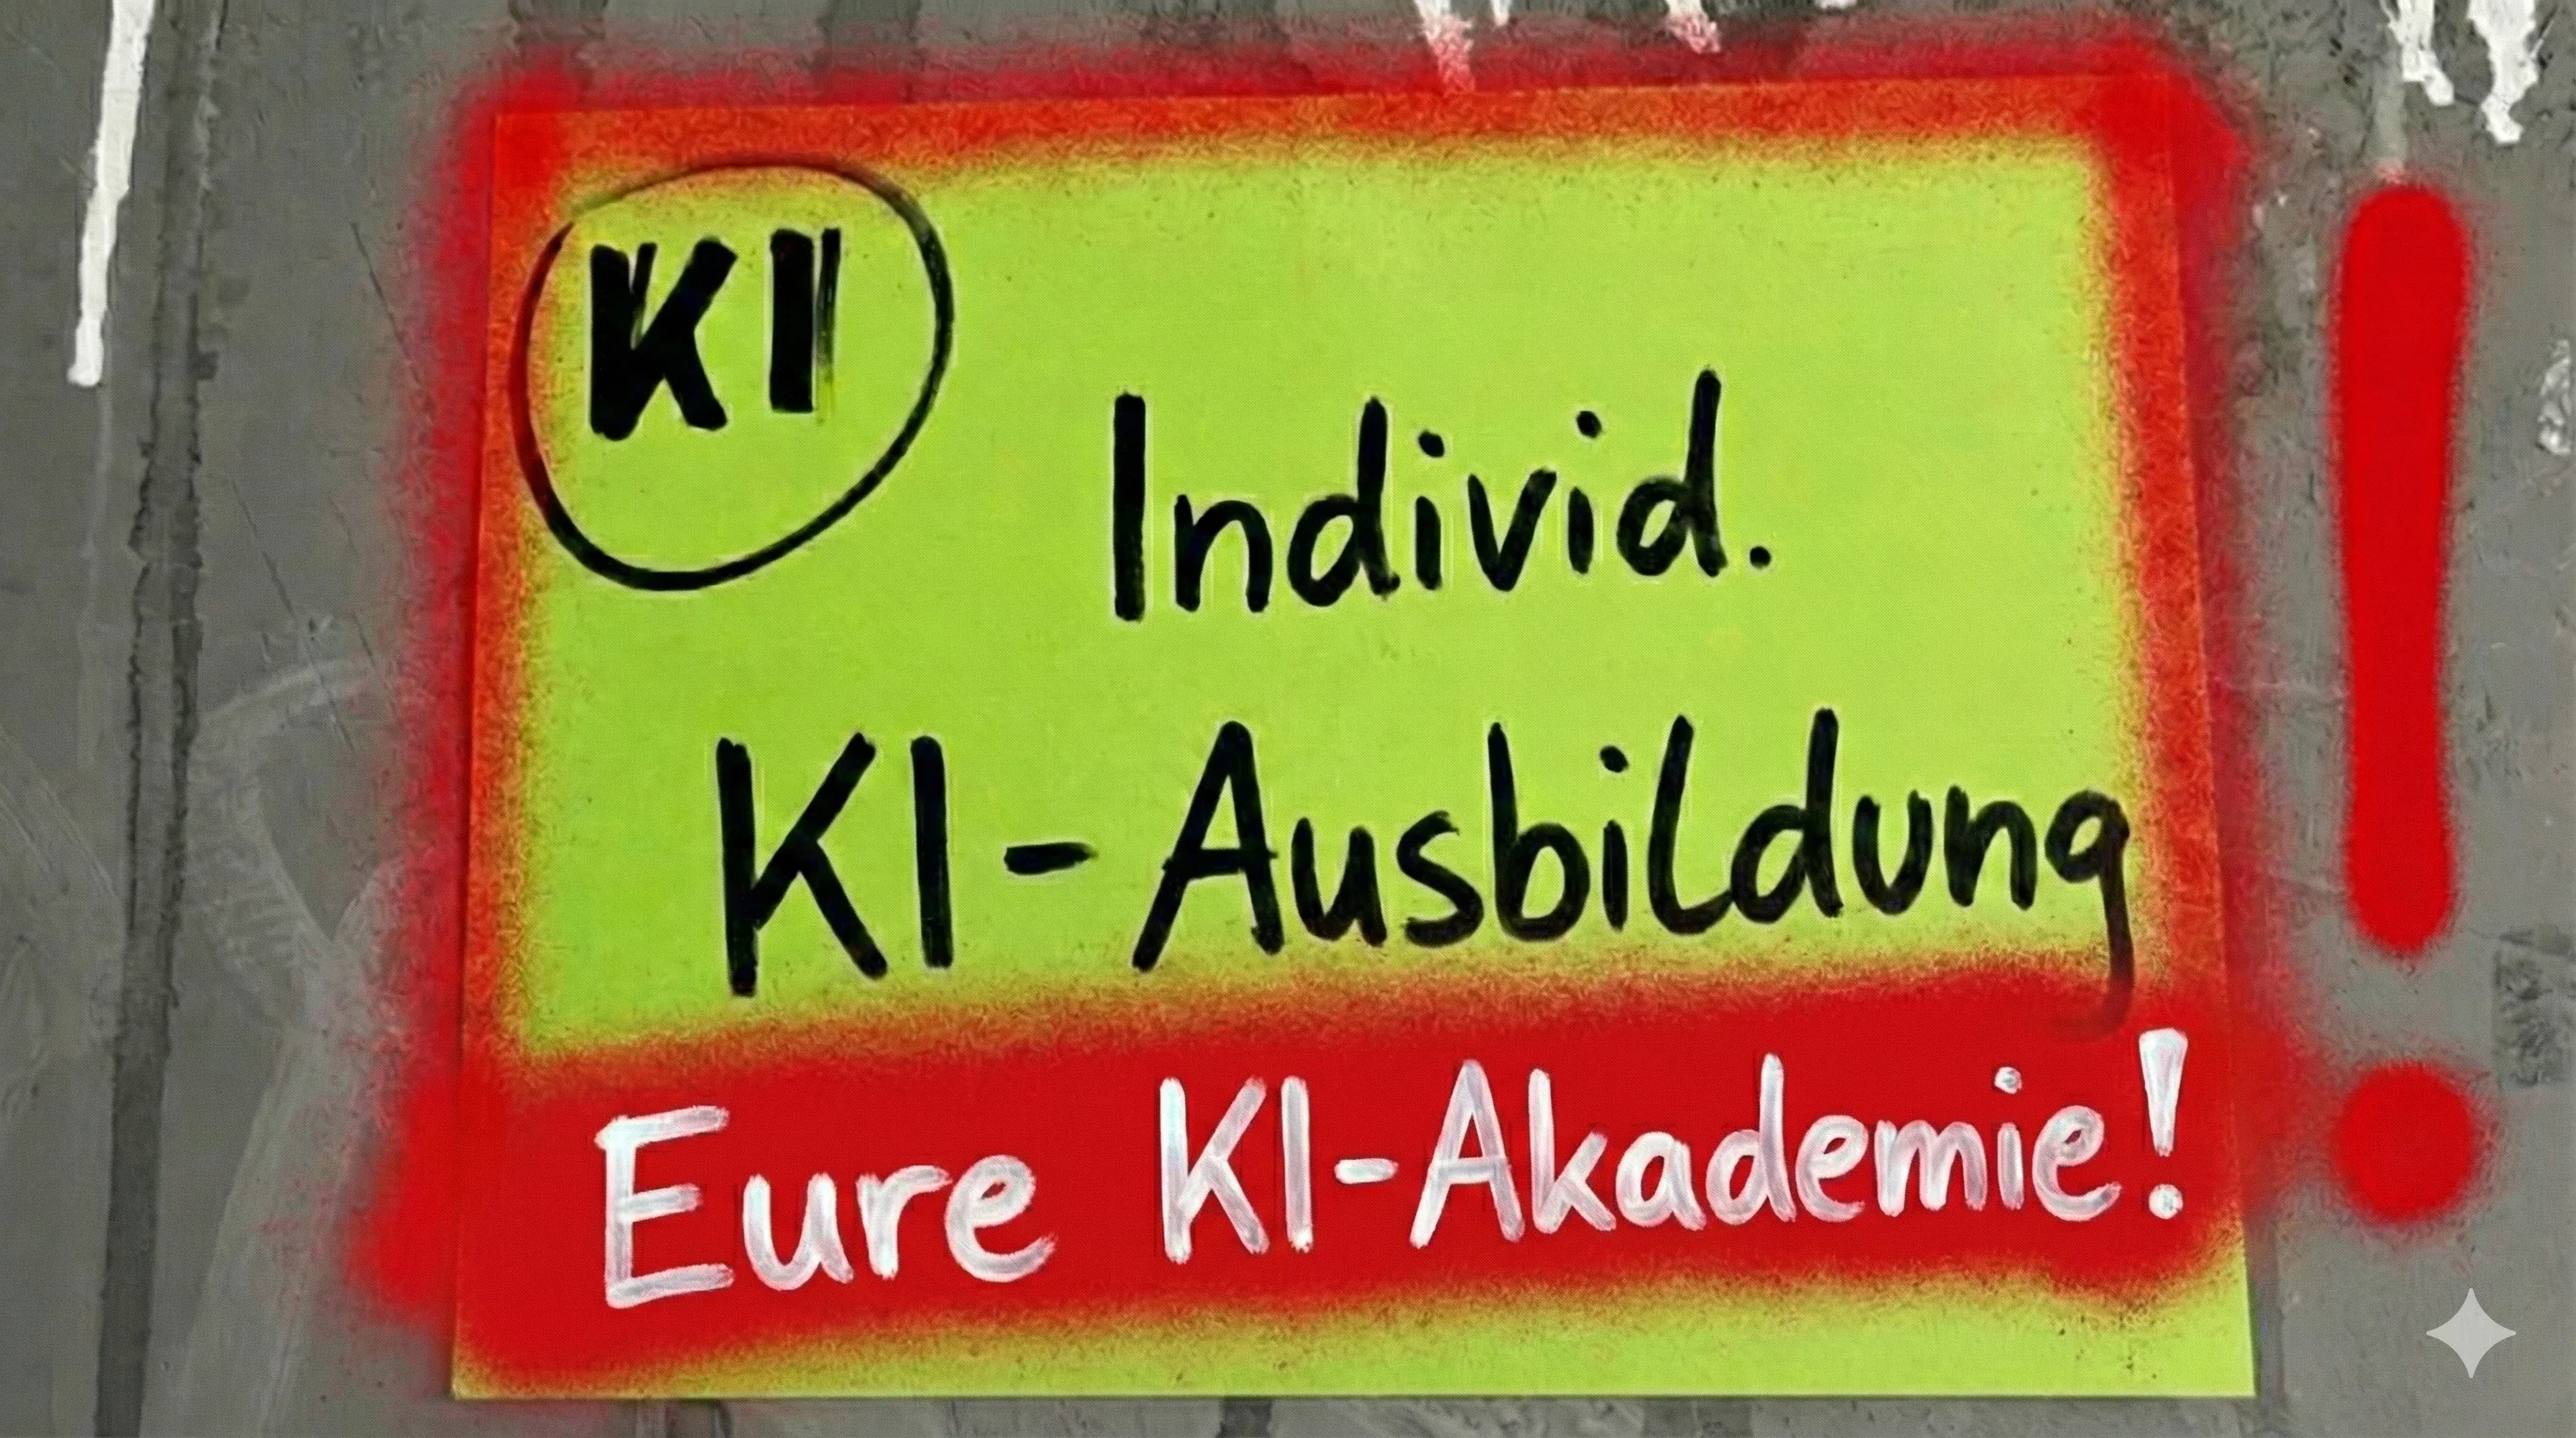 KI
Individ.
KI-Ausbildung
Eure KI-Akademie!
!